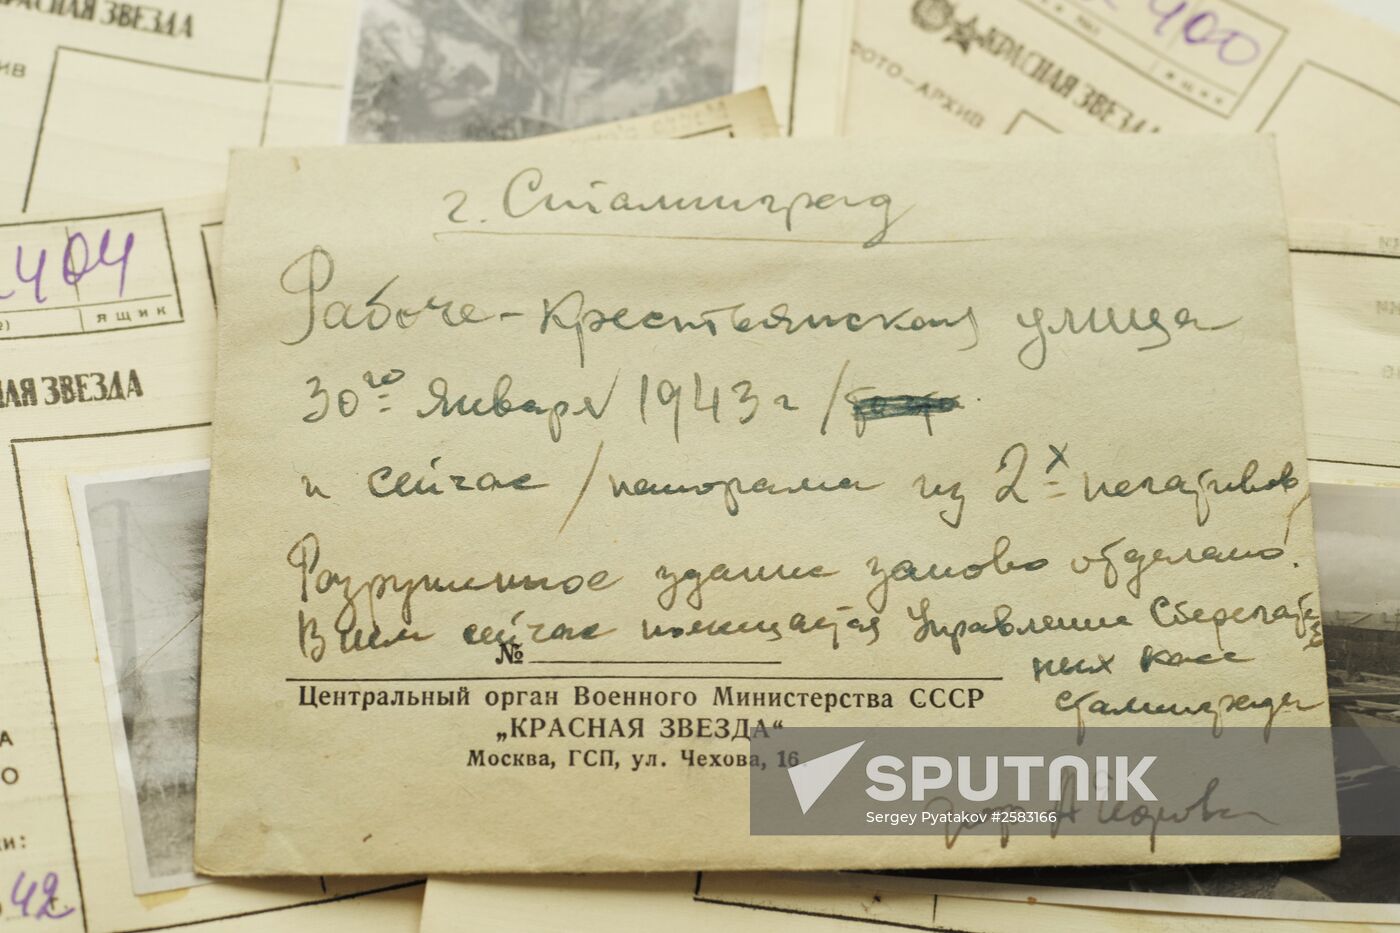 КРАСНАЯ ЗВЕЗДА
400
ящик
КРАСНАЯ ЗВЕЗДА
ФОТО-АРХИВ
404
ящик
ЗВЕЗДА
г. Сталинград
Рабоче-Крестьянская улица
30го января 1943 г /
и сейчас / панорама из 2х негативов/
Разрушенное здание заново отделано.
В нем сейчас помещается Управление Сберегатель
ных касс
Сталинграда
№
Центральный орган Военного Министерства СССР
„КРАСНАЯ ЗВЕЗДА“
Москва, ГСП, ул. Чехова, 16
42
SPUTNIK
Sergey Pyatakov #2583166